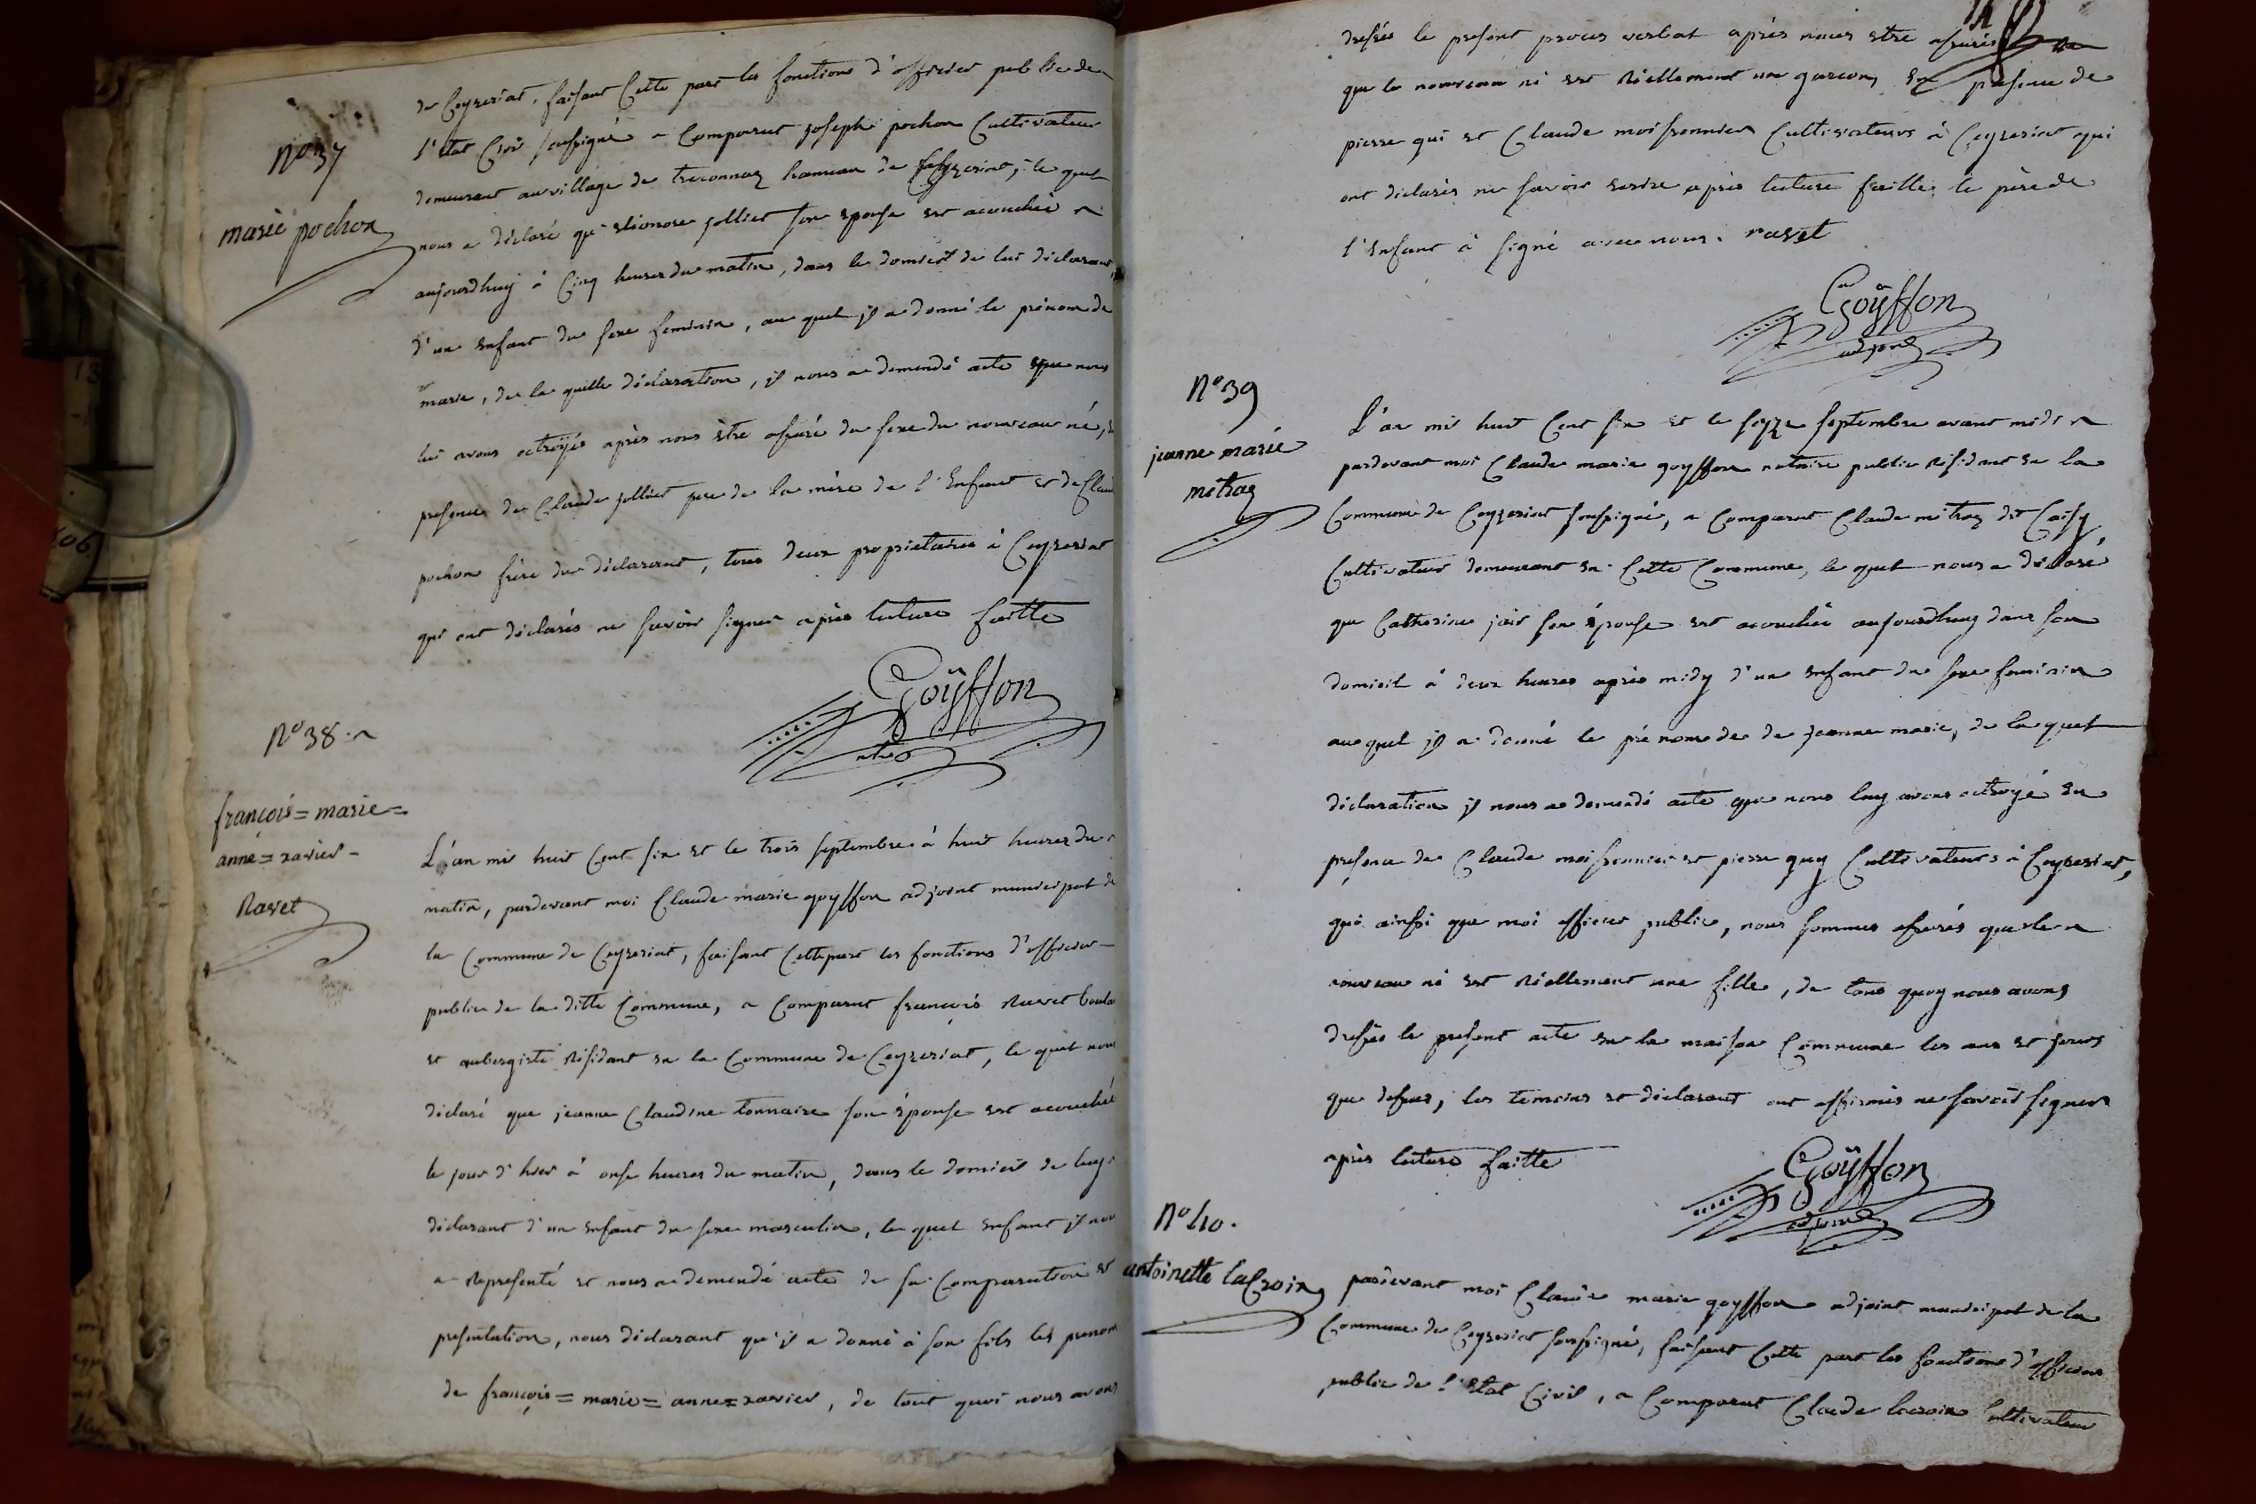 N° 37
marie pochon
de Ceyzeriat, faisant Cette part les fonctions d'officier public de
l'Etat Civil soussigné a Comparut joseph pochon Cultivateur
demeurant au village de treconnaz hameau de Ceyzeriat, le quel
nous a déclaré qu'eléonore jollier son épouse est acouchée
aujourdhuy à Cinq heures du matin, dans le domicil de lui déclarant,
d'un enfant du sexe feminin, au quel il a donné le prénom de
marie, de la quelle déclaration, il nous a demandé acte que nous
lui avons octroyés après nous être assuré du sexe du nouveau né,
presence de Claude jollier pere de la mère de l'Enfant et de Clau
pochon frère du déclarant, tous deux proprietaires à Ceyzeriat
qui ont déclarés ne savoir signer après lecture faitte
Goÿffon
N° 38
françois = marie =
anne = xavier -
Ravet
L'an mil huit Cent six et le trois septembre à huit heures du
matin, pardevant moi Claude marie goyffon adjoint municipal de
la Commune de Ceyzeriat, faisant Cette part les fonctions d'officier
public de la ditte Commune, a Comparut françois Ravet boula
et aubergiste résidant en la Commune de Ceyzeriat, le quel nous
déclaré que jeanne Claudine tonnaire son épouse est acouchée
le jour d'hier à onse heures du matin, dans le domicil de luy
déclarant d'un enfant du sexe masculin, le quel enfant il nou
a représenté et nous a demendé acte de sa Comparution et
présentation, nous déclarant qu'il a donné à son fils les prenom
de françois = marie = anne = xavier, de tout quoi nous avons
dressés le présent procès verbal après nous etre assurés
que le nouveau né est Réellement un garcon, En présence de
pierre qui et Claude moissonnier Cultivateurs à Ceyzeriat qui
ont déclarés ne savoir ecrire après lecture faitte, le père de
l'Enfant à signé avec nous. ravet
Goÿffon
adjoint
N° 39
jeanne marie
mitraz
L'an mil huit Cent six et le seize septembre avant midi
pardevant moi Claude marie goyffon notaire public résidant en la
Commune de Ceyzeriat soussigné, a Comparut Claude mitraz dit
Cultivateur demeurant en Cette Commune, le quel nous a déclaré
que Catherine son épouse est acouchée aujourdhuy dans son
domicil à deux heures après midy d'un enfant du sexe feminin
au quel il a donné le pré nom de de jeanne marie, de la quel
déclaration il nous a demendé acte que nous luy avons octroyé en
présence de Claude moissonnier et pierre quy Cultivateurs à Ceyzeriat,
qui ainsi que moi officier public, nous sommes assurés que le
nouveau né est Réellement une fille, de tous quoy nous avons
dressés le présent acte en la maison Commune les an et jours
que dessus, les temoins et déclarant ont affirmés ne savoir signer
après lecture faitte
Goÿffon
adjoint
N° 40.
antoinette laCroix
pardevant moi Claude marie goyffon adjoint municipal de la
Commune de Ceyzeriat soussigné, faisant Cette part les fonctions d'officier
public de l'Etat Civil, a Comparut Claude lacroix Cultivateur